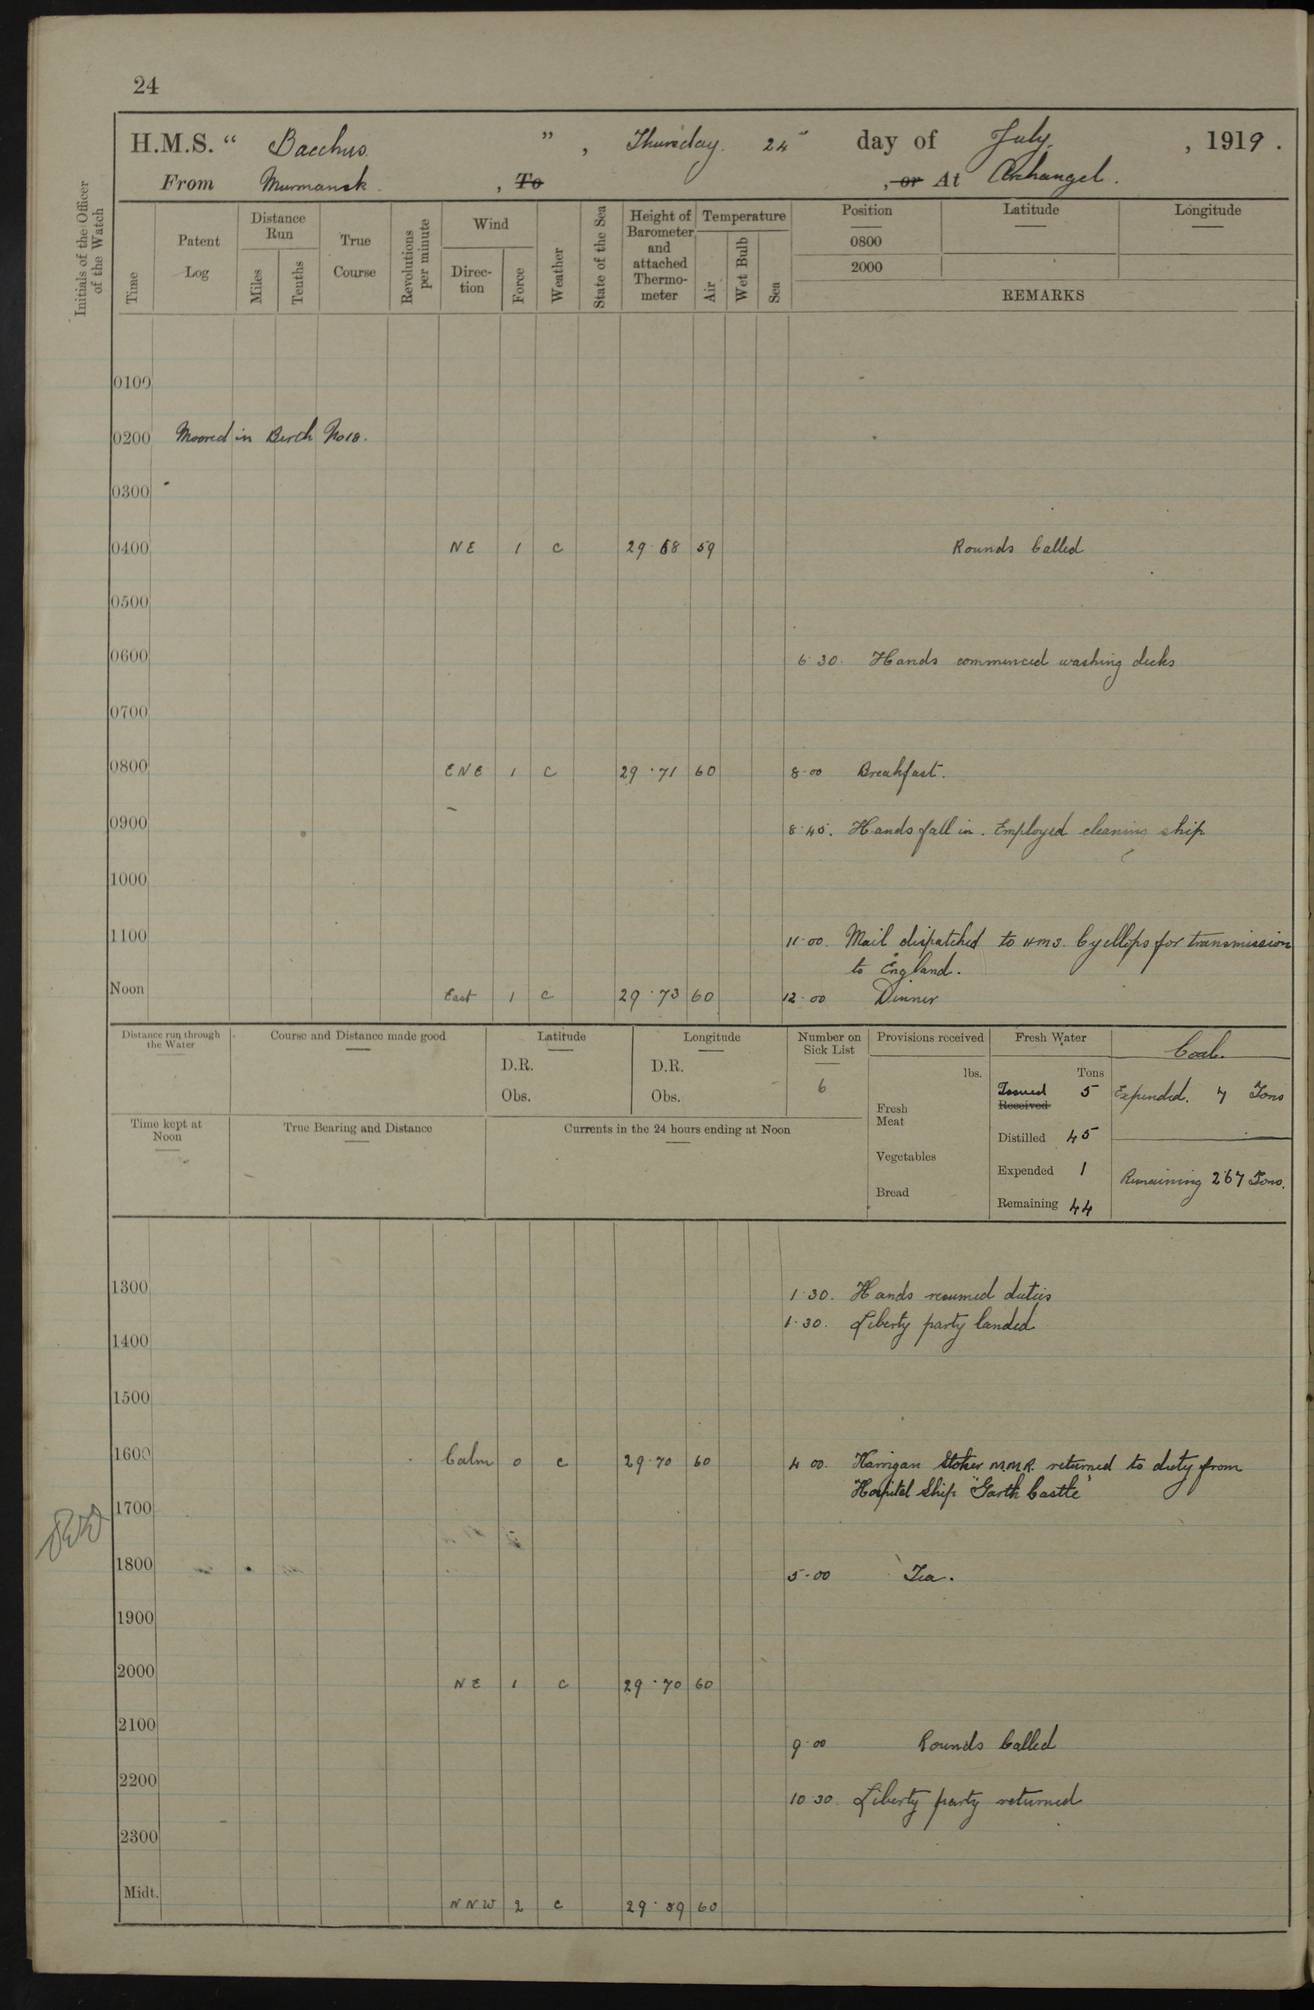 24
H.M.S. “ Bacchus ” , Thursday 24 day of July , 1919 .
From Murmansk , To , or At Archangel .
Initials of the Officer of the Watch
Time
Patent Log
Distance Run
Miles
Tenths
True Course
Revolutions per minute
Wind
Direc-tion
Force
Weather
State of the Sea
Height of Barometer and attached Thermo-meter
Temperature
Air
Wet Bulb
Sea
Position
0800
2000
Latitude
Longitude
REMARKS
0100
0200 Moored in Berth No 18.
0300
0400 NE 1 c 29·68 59 Rounds Called
0500
0600 6·30. Hands commenced washing decks
0700
0800 ENE 1 c 29·71 60 8·00 Breakfast.
0900 8·45. Hands fall in. Employed cleaning ship
1000
1100 11·00. Mail dispatched to HMS. Cyellops for transmission
to England.
Noon East 1 c 29·73 60 12·00 Dinner
Distance run through the Water
Course and Distance made good
Latitude
D.R.
Obs.
Longitude
D.R.
Obs.
Number on Sick List
6
Provisions received
lbs.
Fresh Meat
Vegetables
Bread
Fresh Water
Tons
Issued Received 5
Distilled 45
Expended 1
Remaining 44
Coal.
Expended. 7 Tons
Remaining 267 Tons.
Time kept at Noon
True Bearing and Distance
Currents in the 24 hours ending at Noon
1300 1·30. Hands resumed duties
1·30. Liberty party landed
1400
1500
1600 Calm 0 c 29·70 60 4 00. Harrigan Stoker M.M.R. returned to duty from
Hospital Ship "Garth Castle"
1700
1800 5·00 Tea.
1900
2000 NE 1 c 29·70 60
2100 9·00 Rounds Called
2200 10 30. Liberty party returned
2300
Midt. NNW 2 c 29· 60